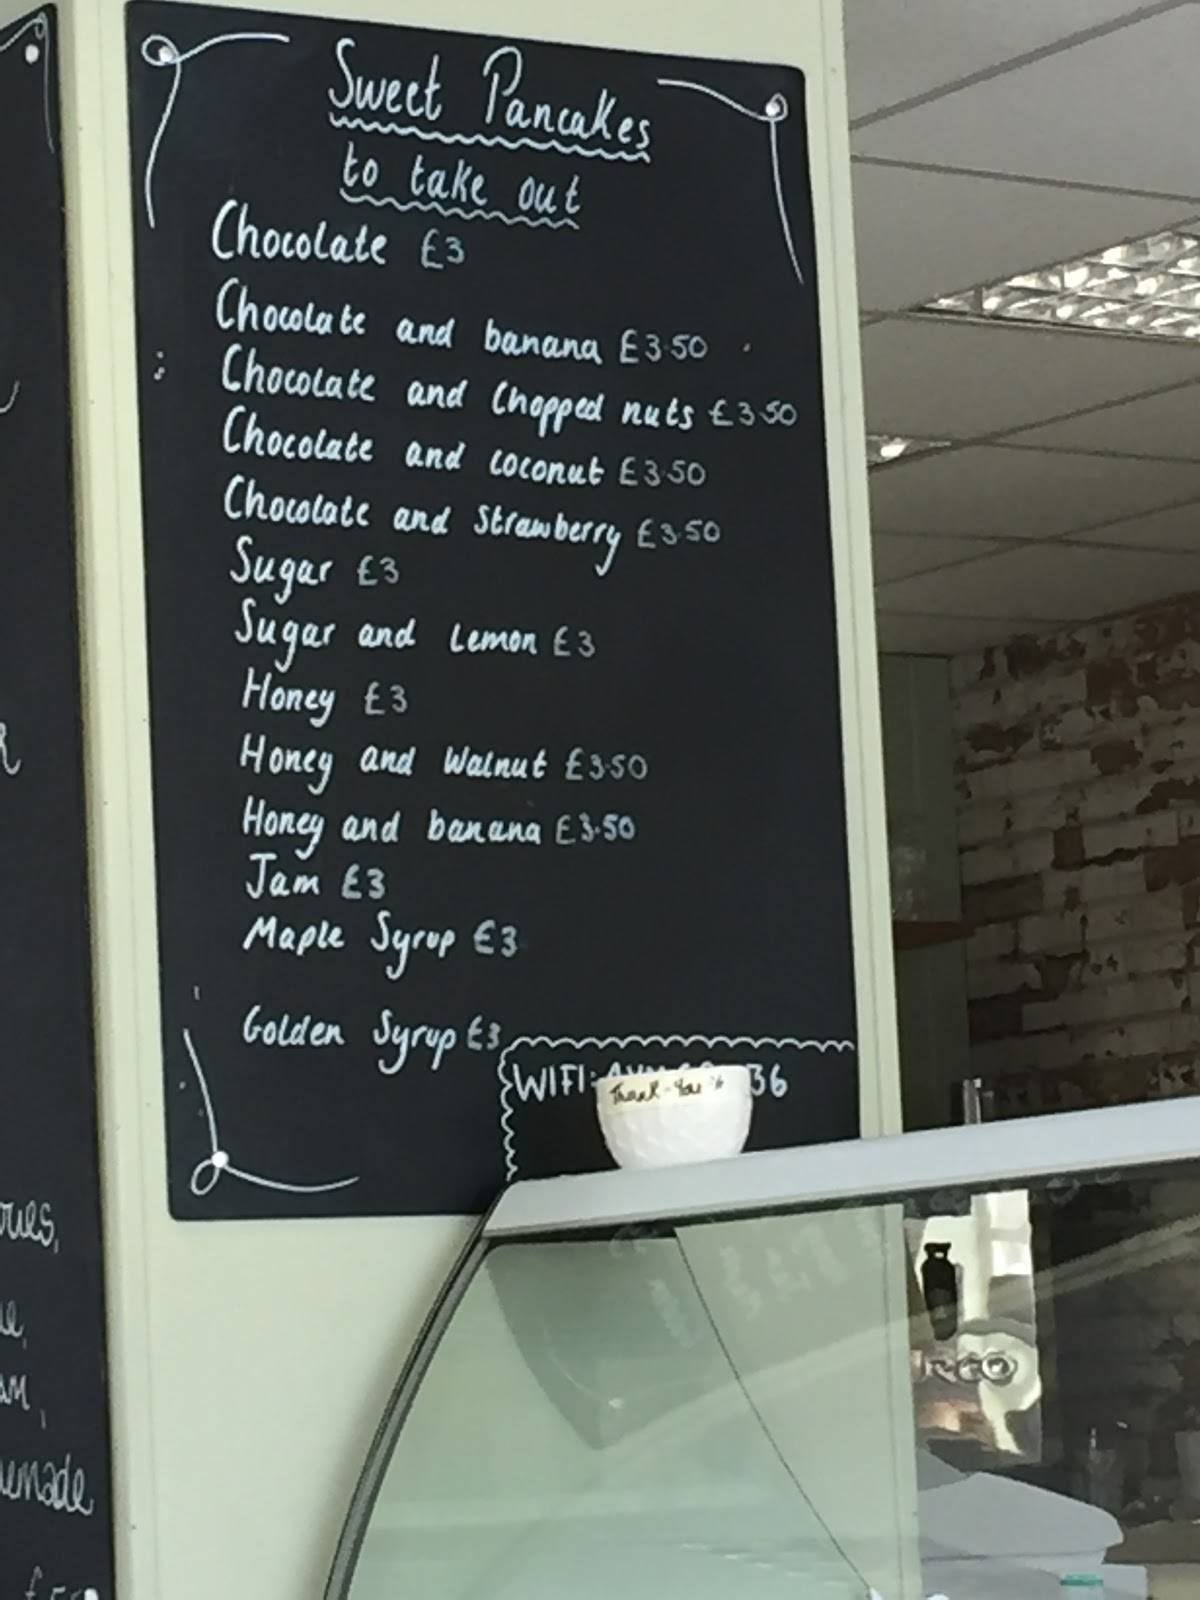 Sweet Pancakes
to take out
Chocolate £3
Chocolate and banana £3.50
Chocolate and Chopped nuts £3.50
Chocolate and coconut £3.50
Chocolate and Strawberry £3.50
Sugar £3
Sugar and Lemon £3
Honey £3
Honey and Walnut £3.50
Honey and banana £3.50
Jam £3
Maple Syrup £3
Golden Syrup £3
WIFI:
36
Thank-You